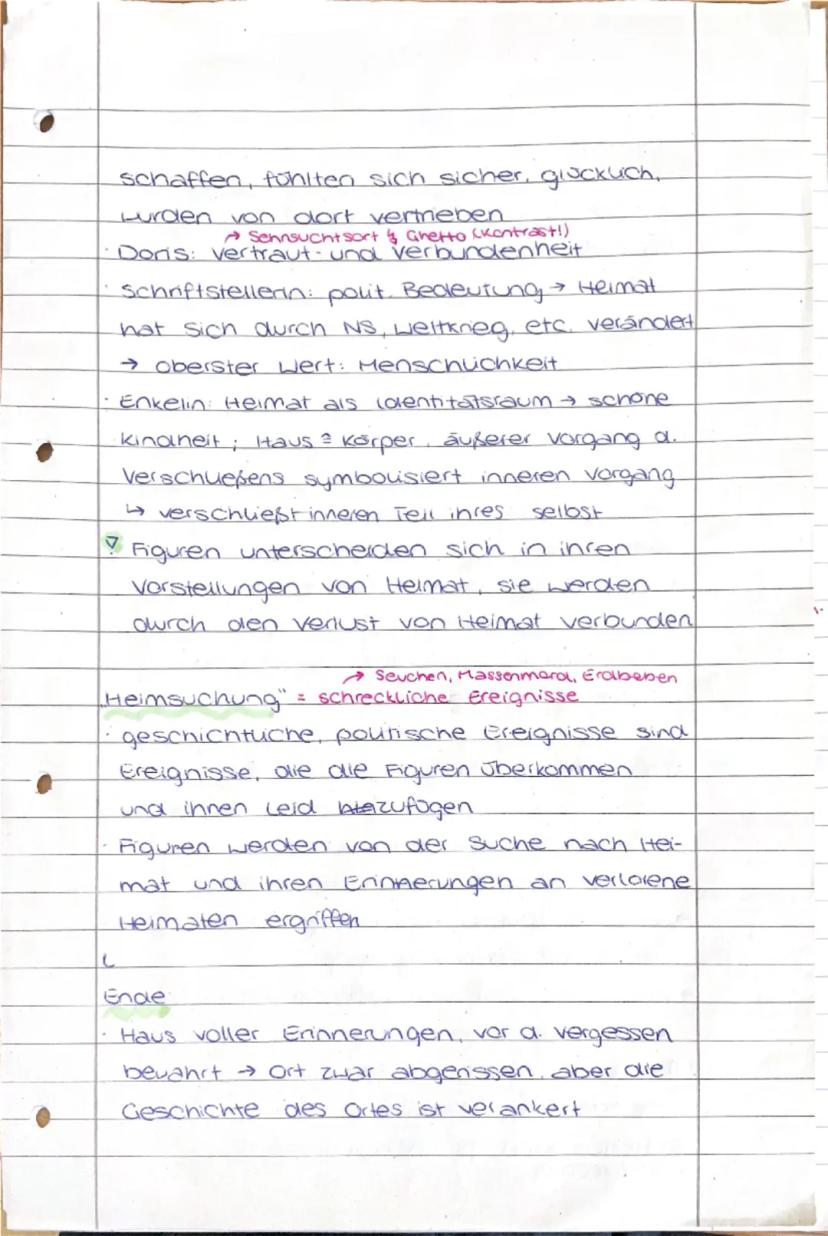 schaffen, fühlten sich sicher, glücklich,
wurden von dort vertrieben
→ Sehnsuchtsort ↯ Ghetto (Kontrast!)
· Doris: Vertraut- und Verbundenheit
· Schriftstellerin: polit. Bedeutung → Heimat
hat sich durch NS, Weltkrieg, etc. verändert
→ oberster Wert: Menschlichkeit
· Enkelin: Heimat als Identitätsraum → schöne
Kindheit; Haus ≙ Körper, äußerer Vorgang d.
Verschließens symbolisiert inneren Vorgang
↳ verschließt inneren Teil ihres selbst
Figuren unterscheiden sich in ihren
Vorstellungen von Heimat, sie werden
durch den Verlust von Heimat verbunden
→ Seuchen, Massenmord, Erdbeben
„Heimsuchung" = schreckliche Ereignisse
· geschichtliche, politische Ereignisse sind
Ereignisse, die die Figuren überkommen
und ihnen Leid zufügen
· Figuren werden von der Suche nach Hei-
mat und ihren Erinnerungen an verlorene
Heimaten ergriffen
Ende
· Haus voller Erinnerungen, vor d. Vergessen
bewahrt → Ort zwar abgerissen, aber die
Geschichte des Ortes ist verankert